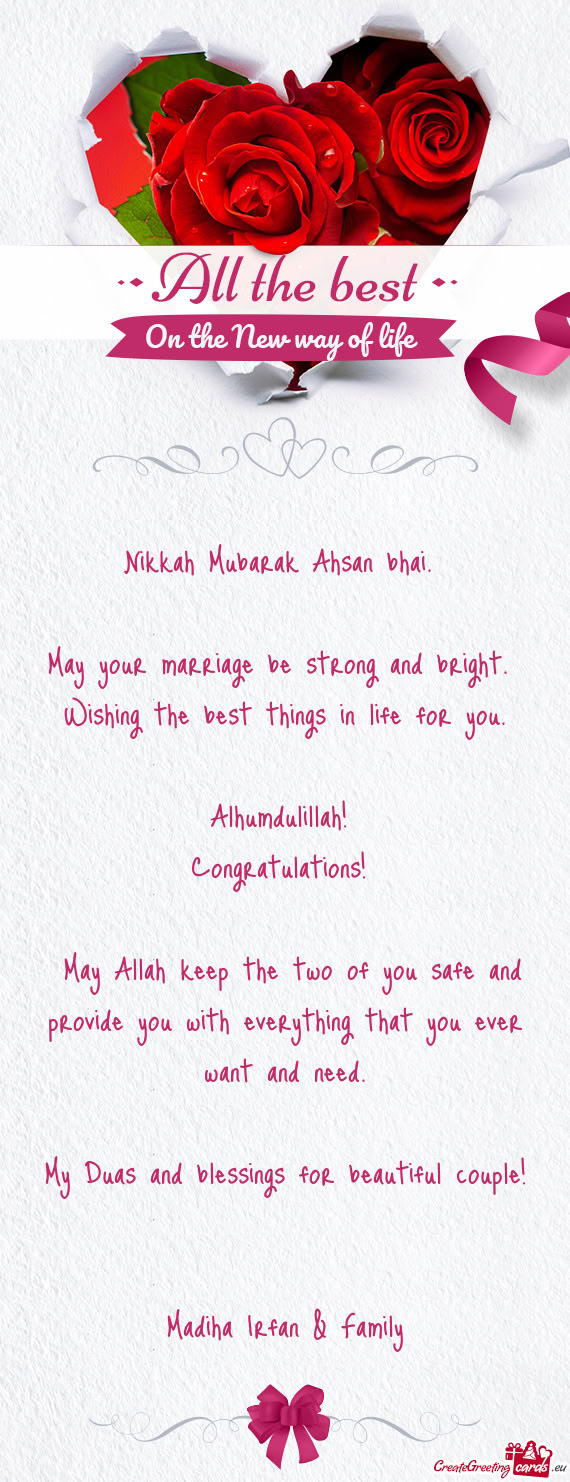 All the best
On the New way of life
Nikkah Mubarak Ahsan bhai.
May your marriage be strong and bright.
Wishing the best things in life for you.
Alhumdulillah!
Congratulations!
May Allah keep the two of you safe and
provide you with everything that you ever
want and need.
My Duas and blessings for beautiful couple!
Madiha Irfan & Family
CreateGreetingcards.eu